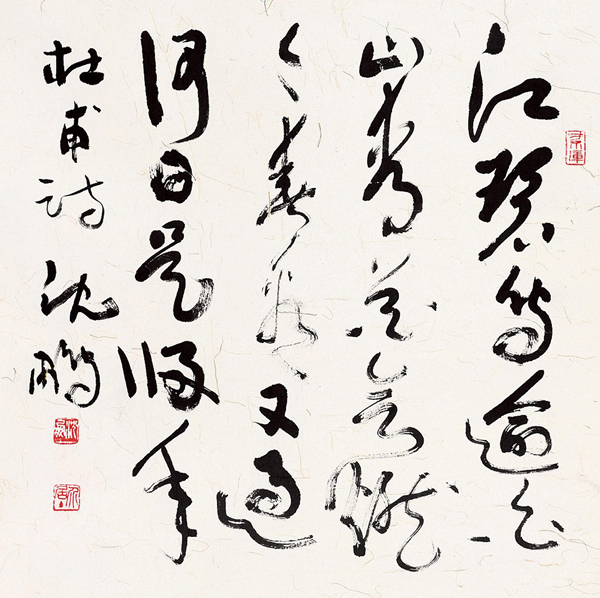 江碧鸟逾白
山青花欲燃
今春看又过
何日是归年
杜甫诗 沈鹏